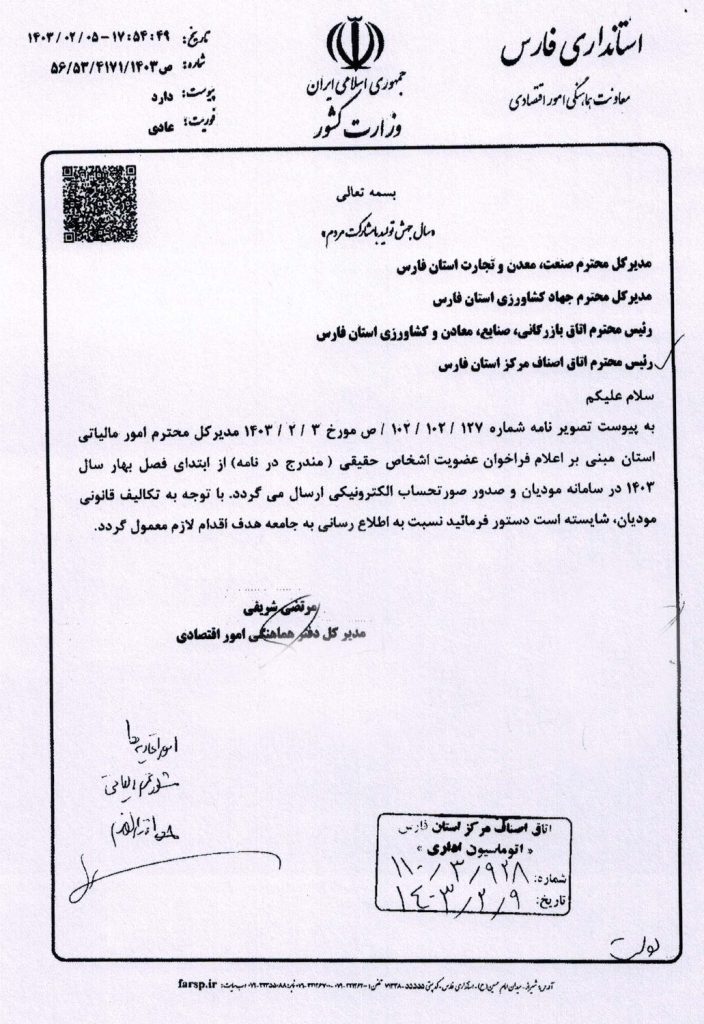 استانداری فارس
معاونت هماهنگی امور اقتصادی
جمهوری اسلامی ایران
وزارت کشور
تاریخ: ۱۴۰۳/۰۲/۰۵-۱۷:۵۴:۴۹
شماره: ۵۶/۵۳/۴۱۷۱/ص۱۴۰۳
پیوست: دارد
فوریت: عادی
بسمه تعالی
«سال جهش تولید با مشارکت مردم»
مدیرکل محترم صنعت، معدن و تجارت استان فارس
مدیرکل محترم جهاد کشاورزی استان فارس
رئیس محترم اتاق بازرگانی، صنایع، معادن و کشاورزی استان فارس
رئیس محترم اتاق اصناف مرکز استان فارس
سلام علیکم
به پیوست تصویر نامه شماره ۱۲۷ / ۱۰۲ / ۱۰۲/ ص مورخ ۳ / ۲ / ۱۴۰۳ مدیرکل محترم امور مالیاتی
استان مبنی بر اعلام فراخوان عضویت اشخاص حقیقی ( مندرج در نامه) از ابتدای فصل بهار سال
۱۴۰۳ در سامانه مودیان و صدور صورتحساب الکترونیکی ارسال می گردد. با توجه به تکالیف قانونی
مودیان، شایسته است دستور فرمائید نسبت به اطلاع رسانی به جامعه هدف اقدام لازم معمول گردد.
مرتضی شریفی
مدیر کل دفتر هماهنگی امور اقتصادی
امور اتحادیه ها
اتاق اصناف مرکز استان فارس
« اتوماسیون اداری »
شماره: ۱۱۰/۳/۹۲۸
تاریخ: ۱۴۰۳/۲/۹
آدرس: شیراز- میدان امام حسین(ع)- استانداری فارس- کد پستی
farsp.ir